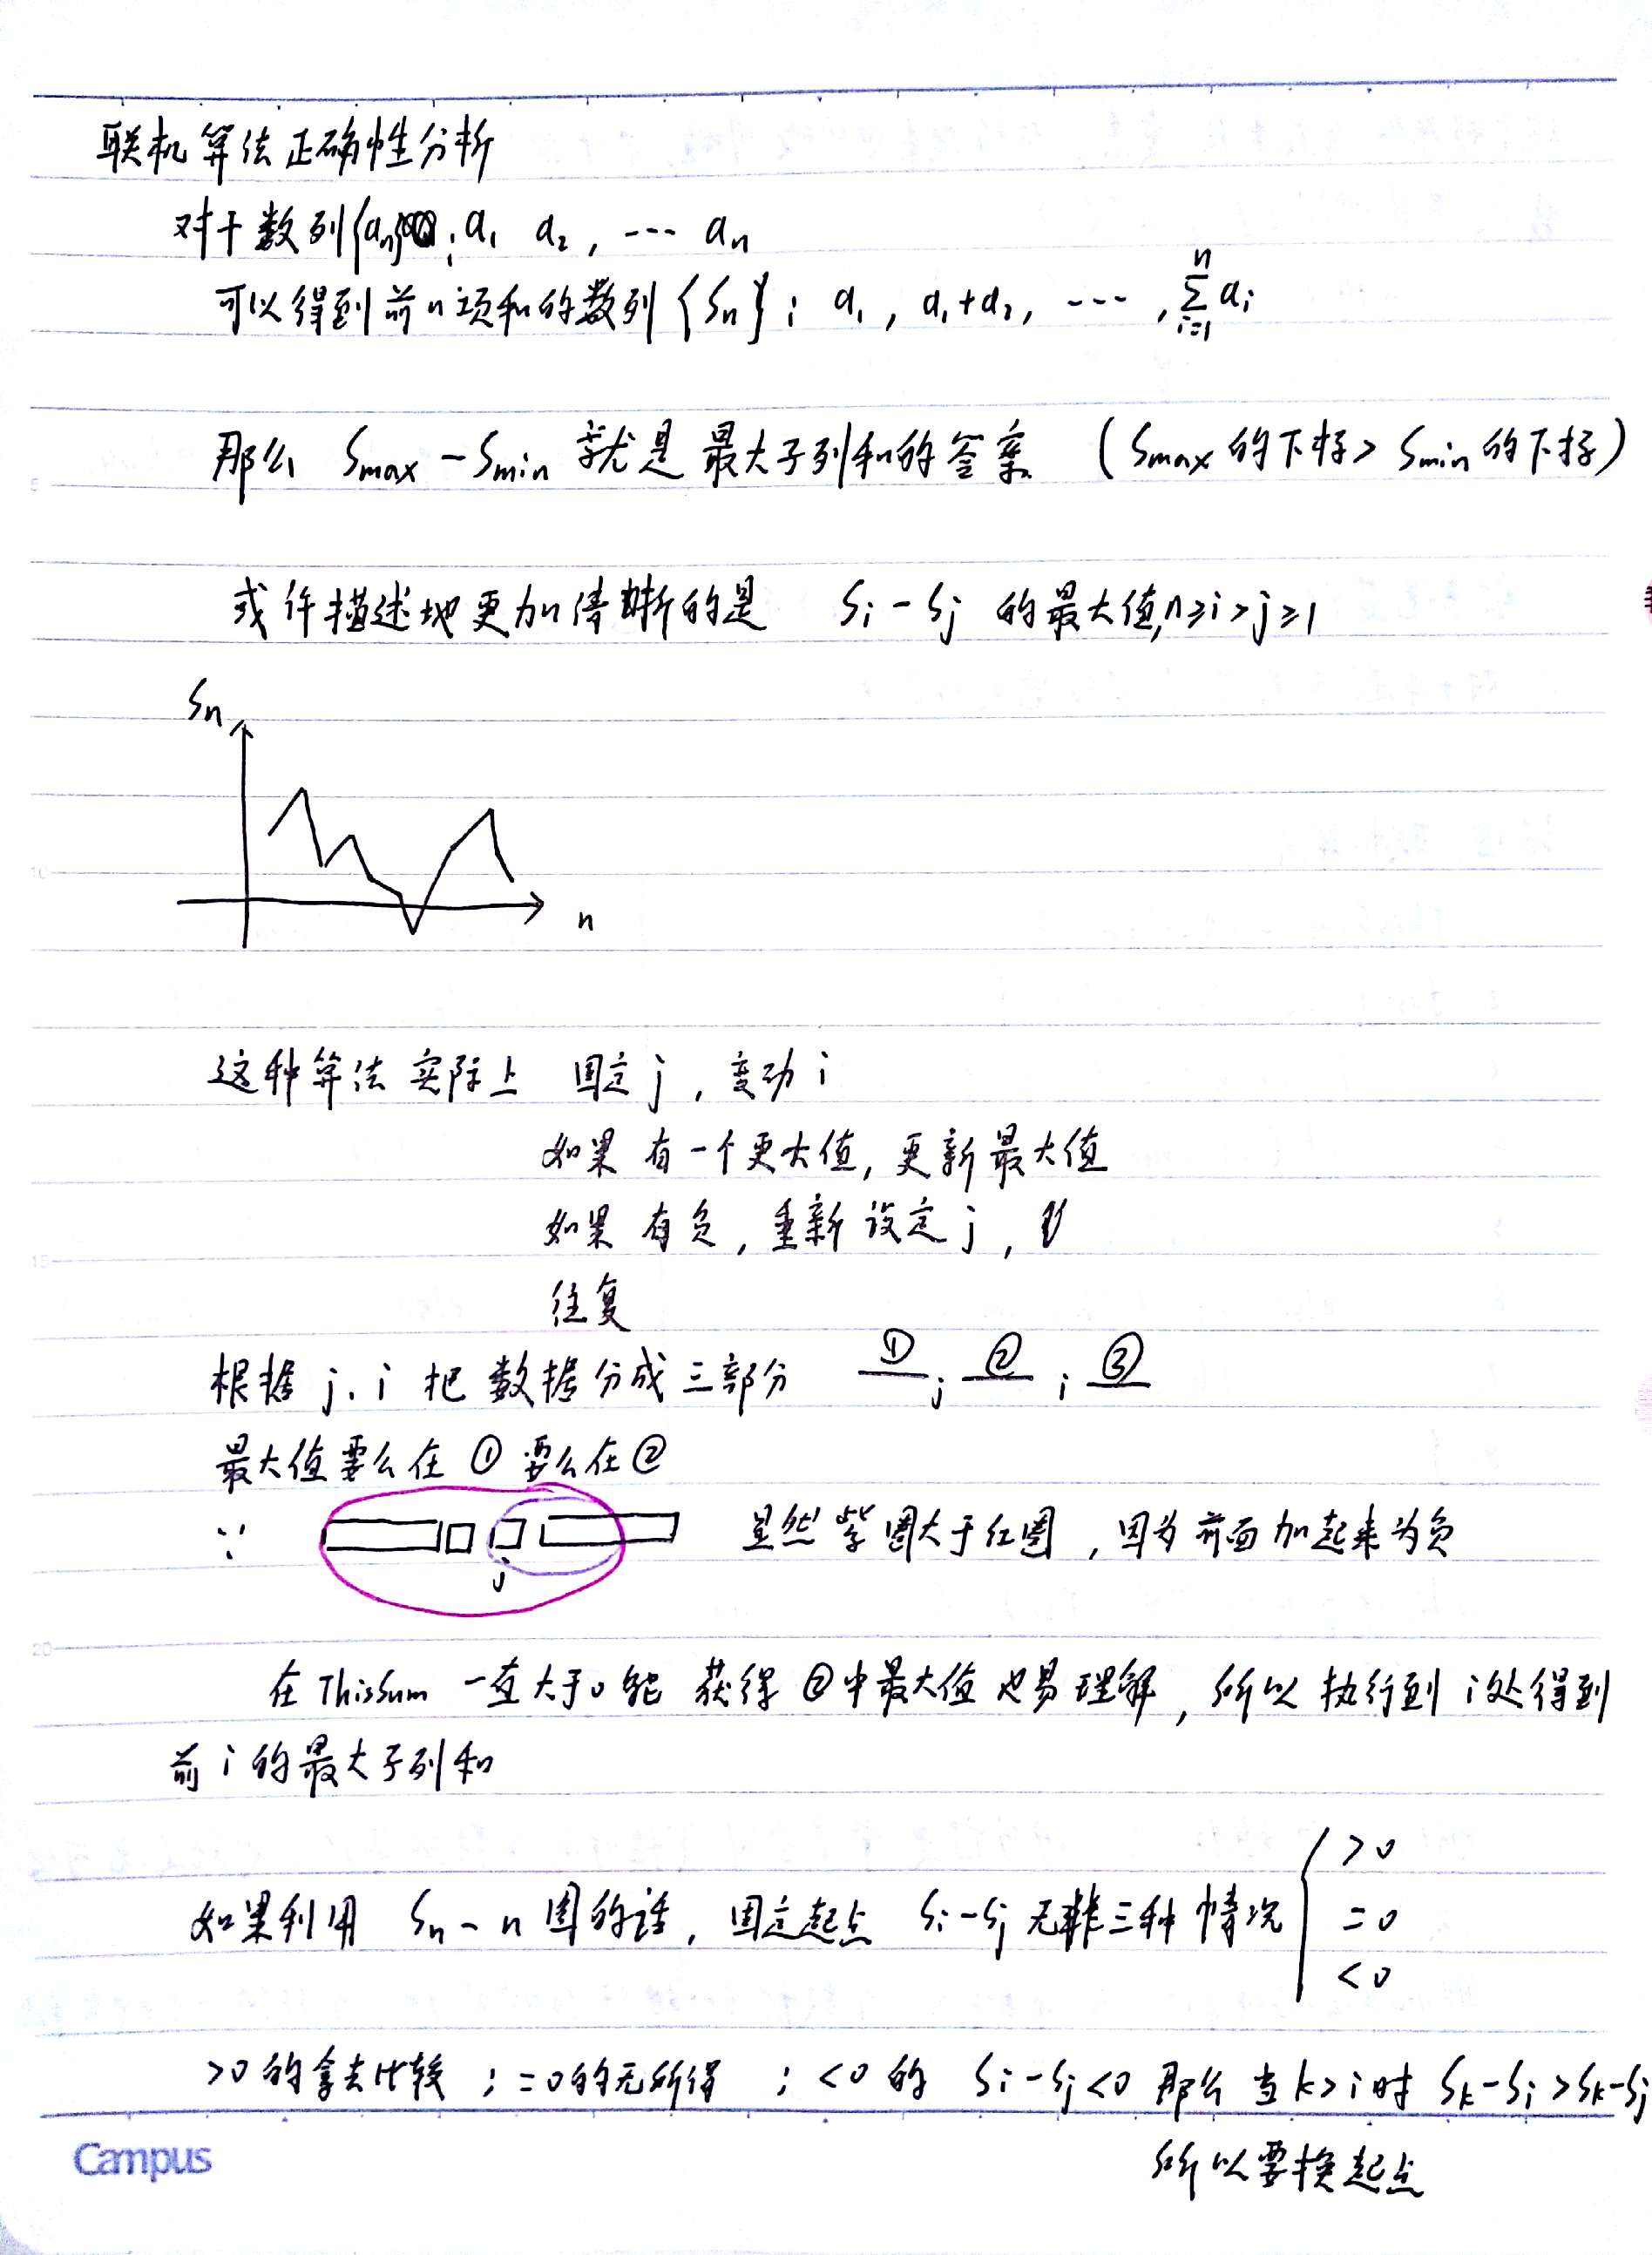 联机算法正确性分析
对于数列{an}: a₁ a₂, ... an
可以得到前n项和的数列{Sn}: a₁, a₁+a₂, ..., n∑i=1 ai
那么 Smax - Smin 就是最大子列和的答案 (Smax的下标> Smin的下标)
或许描述地更加清晰的是 Si - Sj 的最大值, n≥i>j≥1
Sn
n
这种算法实际上 固定j, 变动i
如果有一个更大值, 更新最大值
如果有负, 重新设定j,
往复
根据 j. i 把数据分成三部分 ① j ② i ③
最大值要么在①要么在②
∵ j 显然紫圈大于红圈, 因为前面加起来为负
在ThisSum一直大于0能获得②中最大值也易理解, 所以执行到i处得到
前i的最大子列和
如果利用 Sn - n 图的话, 固定起点 Si - Sj 无非三种情况 { >0
=0
<0
>0的拿去比较; =0的无所得; <0的 Si - Sj<0 那么当k>i时 Sk - Si > Sk - Sj
所以要换起点
Campus